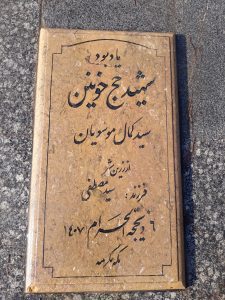 یادبود
شهید حج خونین
سید کمال موسویان
از زرین شهر
فرزند: سید مصطفی
۶ ذیحجه الحرام ۱۴۰۷
مکه مکرمه